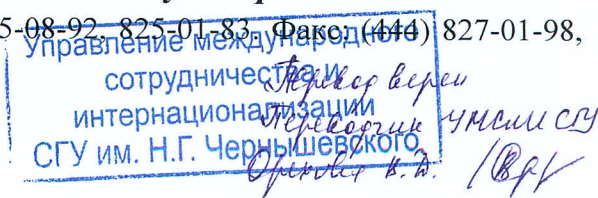 5-08-92, 825-01-83. Факс: (444) 827-01-98,
Управление международного
сотрудничества и
интернационализации
СГУ им. Н.Г. Чернышевского
Перевод верен
Переводчик УМСИ СГУ